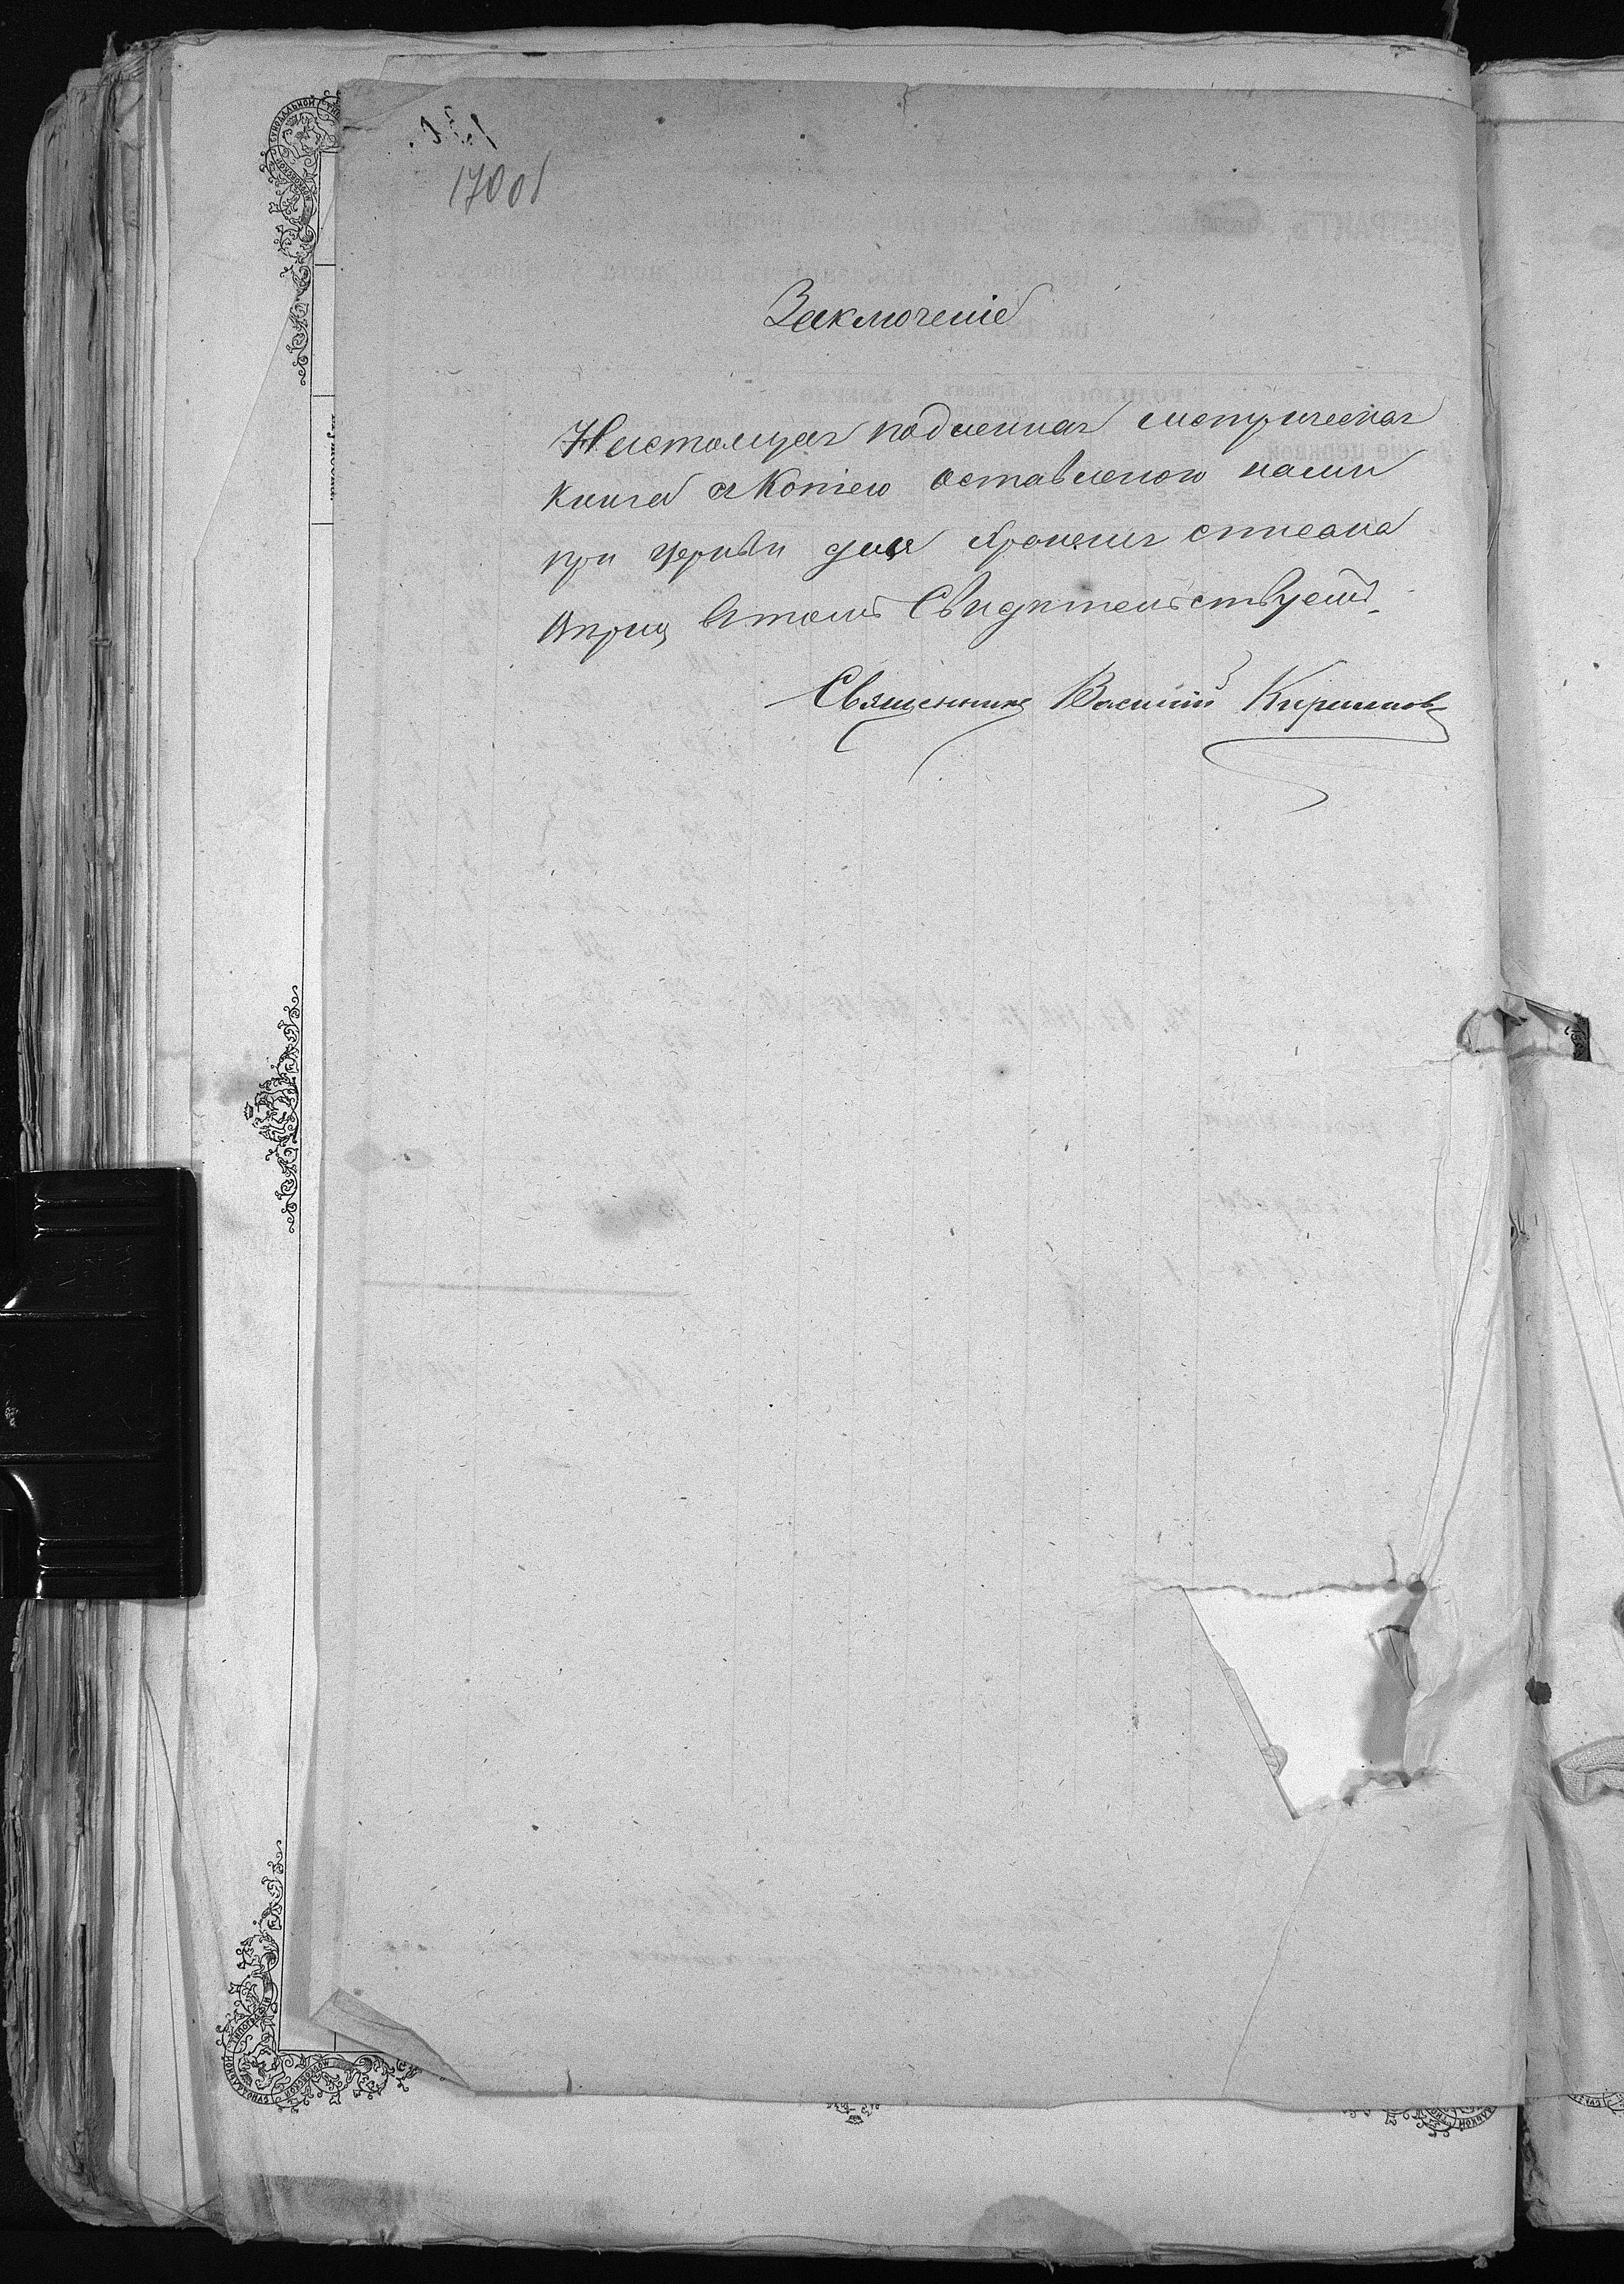 170 об
Заключеніе
Настоящая подленная метрическая
книга съ копіею оставленою нами
при церкви для храненія списана
вѣрно въ томъ Свидѣтельствуемъ.
Священникъ Василій Кирилловъ